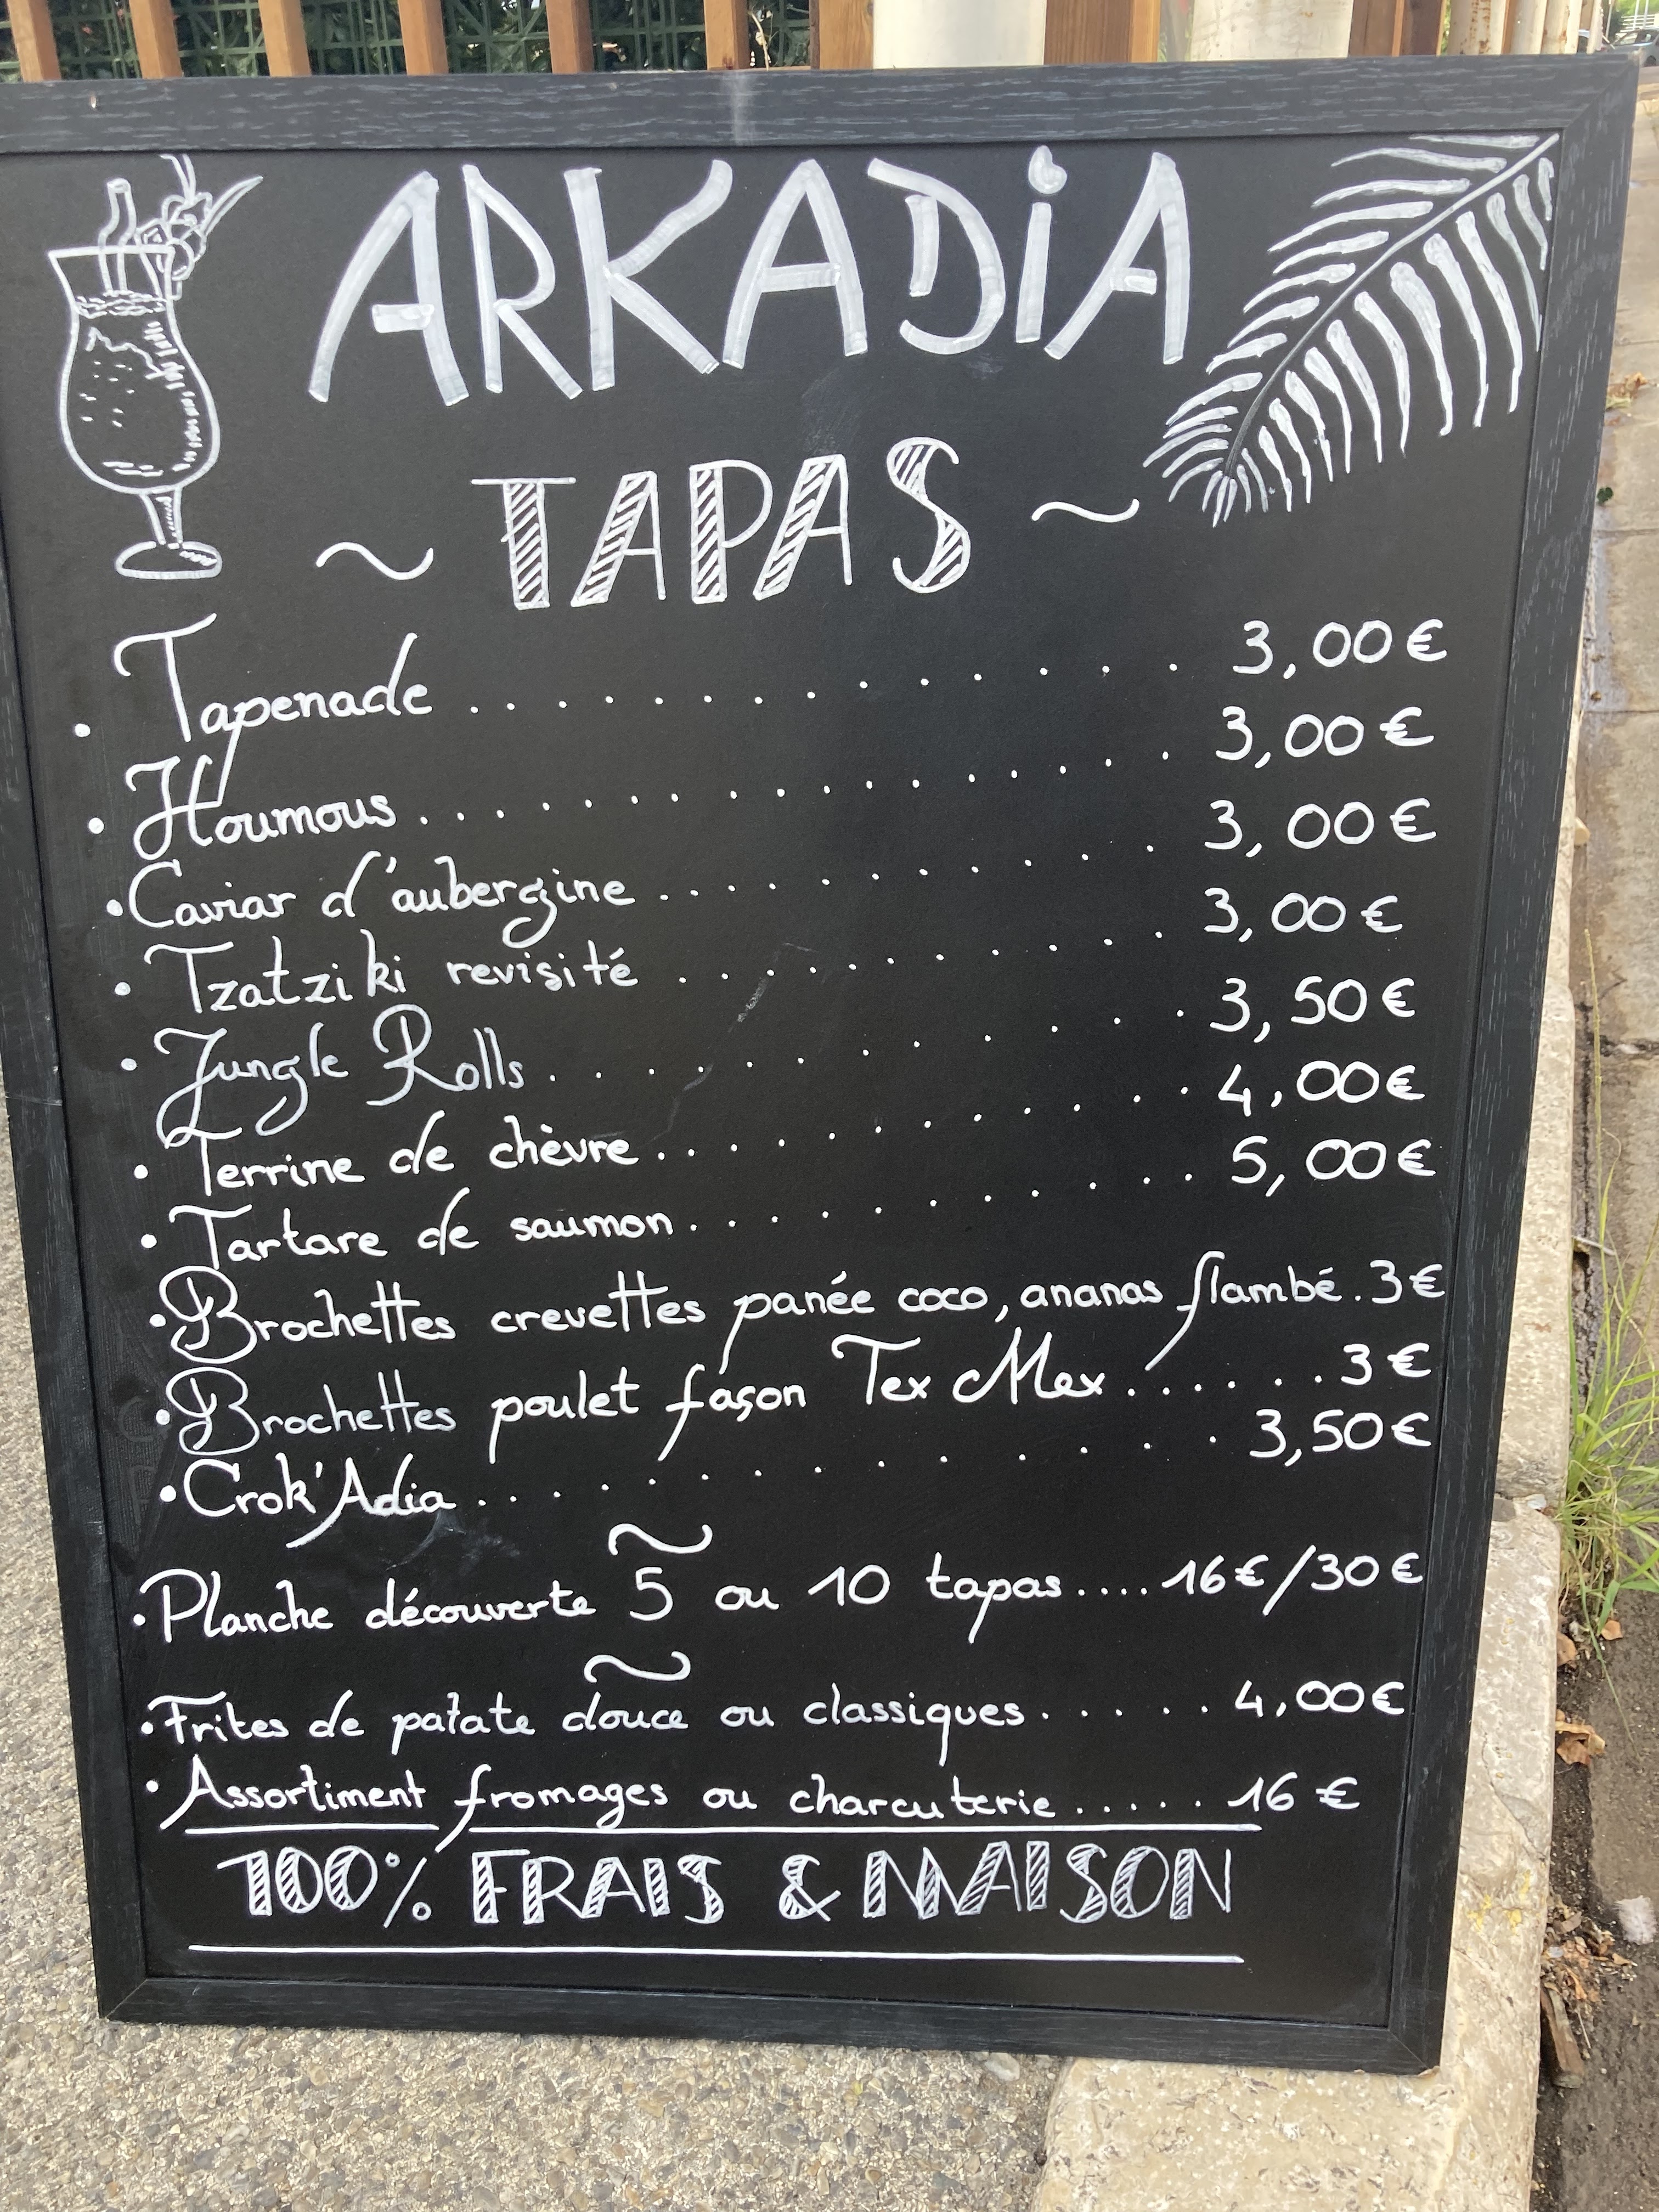 ARKADiA
~ TAPAS ~
• Tapenade . . . . . . . . . . . . . . 3,00€
• Houmous . . . . . . . . . . . . . . . 3,00€
• Caviar d'aubergine . . . . . . . . . . . 3,00€
• Tzatziki revisité . . . . . . . . . . . . 3,00€
• Jungle Rolls . . . . . . . . . . . 3,50€
• Terrine de chèvre . . . . . . . . . . . . 4,00€
• Tartare de saumon . . . . . . . . . . . 5,00€
• Brochettes crevettes panée coco, ananas flambé . 3€
• Brochettes poulet façon Tex Mex . . . . . . . 3€
• Crok'Adia . . . . . . . . . . . . . 3,50€
~
• Planche découverte 5 ou 10 tapas .... 16€/30€
~
• Frites de patate douce ou classiques . . . . . . 4,00€
• Assortiment fromages ou charcuterie . . . . . . 16€
100% FRAIS & MAISON